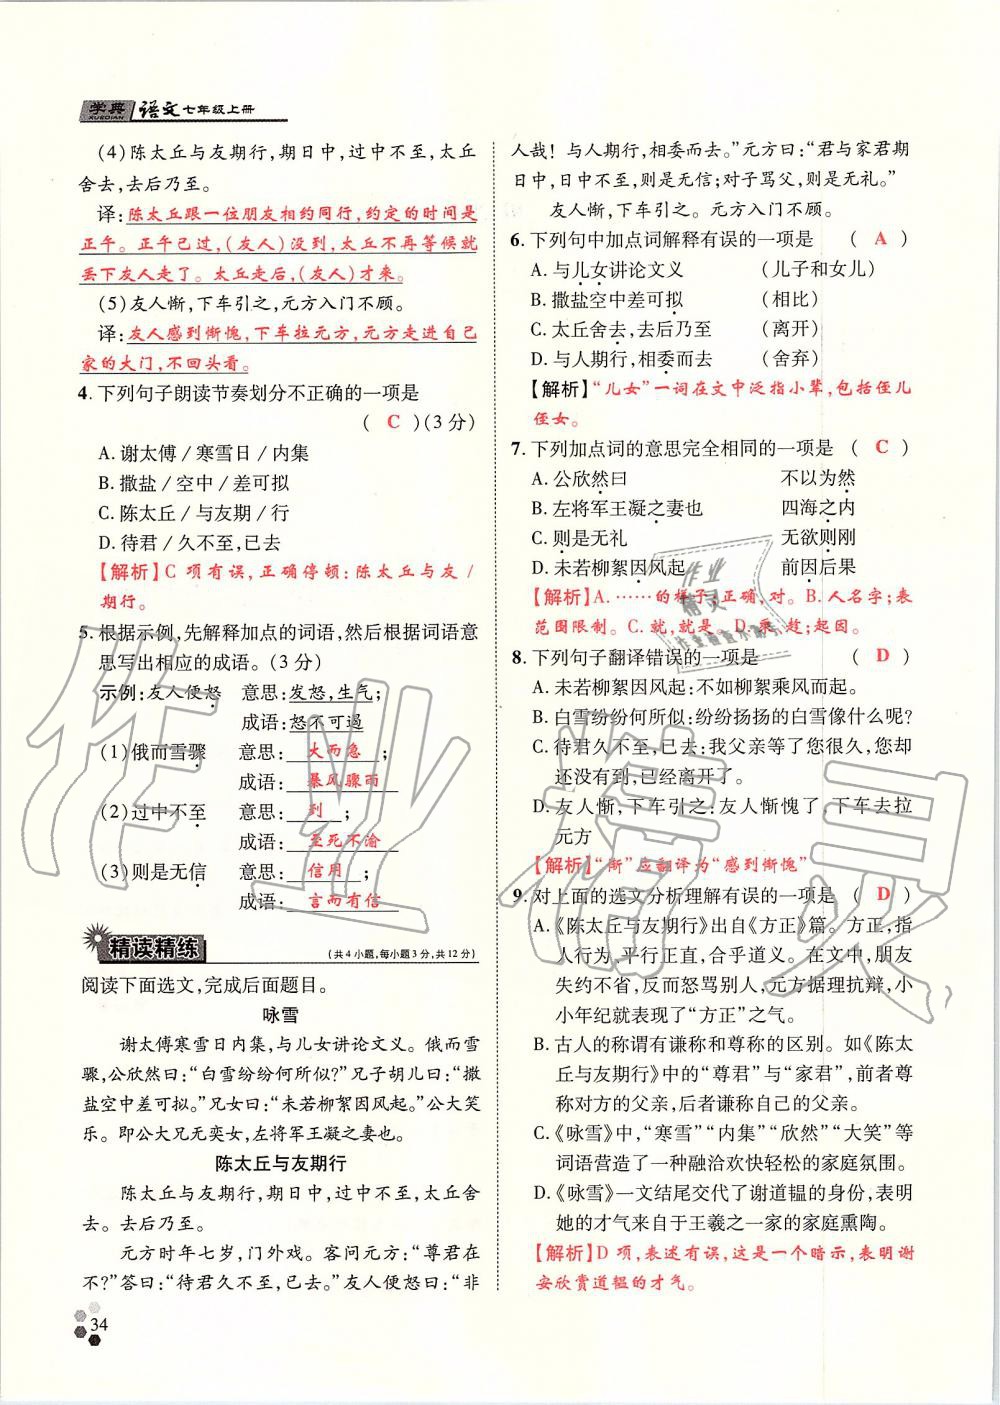 学典 语文七年级上册
XUEDIAN
(4)陈太丘与友期行,期日中,过中不至,太丘
舍去,去后乃至。
译:陈太丘跟一位朋友相约同行,约定的时间是
正午。正午已过,(友人)没到,太丘不再等候就
丢下友人走了。太丘走后,(友人)才来。
(5)友人惭,下车引之,元方入门不顾。
译:友人感到惭愧,下车拉元方,元方走进自己
家的大门,不回头看。
4.下列句子朗读节奏划分不正确的一项是
( C )(3分)
A.谢太傅/寒雪日/内集
B.撒盐/空中/差可拟
C.陈太丘/与友期/行
D.待君/久不至,已去
【解析】C 项有误,正确停顿:陈太丘与友/
期行。
5.根据示例,先解释加点的词语,然后根据词语意
思写出相应的成语。(3分)
示例:友人便怒 意思:发怒,生气;
成语:怒不可遏
(1)俄而雪骤 意思:大而急;
成语:暴风骤雨
(2)过中不至 意思:到;
成语:至死不渝
(3)则是无信 意思:信用;
成语:言而有信
精读精练 (共4小题,每小题3分,共12分)
阅读下面选文,完成后面题目。
咏雪
谢太傅寒雪日内集,与儿女讲论文义。俄而雪
骤,公欣然曰:“白雪纷纷何所似?”兄子胡儿曰:“撒
盐空中差可拟。”兄女曰:“未若柳絮因风起。”公大笑
乐。即公大兄无奕女,左将军王凝之妻也。
陈太丘与友期行
陈太丘与友期行,期日中,过中不至,太丘舍
去。去后乃至。
元方时年七岁,门外戏。客问元方:“尊君在
不?”答曰:“待君久不至,已去。”友人便怒曰:“非
34
人哉!与人期行,相委而去。”元方曰:“君与家君期
日中,日中不至,则是无信;对子骂父,则是无礼。”
友人惭,下车引之。元方入门不顾。
6.下列句中加点词解释有误的一项是 ( A )
A.与儿女讲论文义 (儿子和女儿)
B.撒盐空中差可拟 (相比)
C.太丘舍去,去后乃至 (离开)
D.与人期行,相委而去 (舍弃)
【解析】“儿女”一词在文中泛指小辈,包括侄儿
侄女。
7.下列加点词的意思完全相同的一项是 ( C )
A.公欣然曰 不以为然
B.左将军王凝之妻也 四海之内
C.则是无礼 无欲则刚
D.未若柳絮因风起 前因后果
【解析】A.……的样子;正确,对。B.人名字;表
范围限制。C.就,就是。D.乘,趁;起因。
8.下列句子翻译错误的一项是 ( D )
A.未若柳絮因风起:不如柳絮乘风而起。
B.白雪纷纷何所似:纷纷扬扬的白雪像什么呢?
C.待君久不至,已去:我父亲等了您很久,您却
还没有到,已经离开了。
D.友人惭,下车引之:友人惭愧了,下车去拉
元方
【解析】“惭”应翻译为“感到惭愧”
9.对上面的选文分析理解有误的一项是 ( D )
A.《陈太丘与友期行》出自《方正》篇。方正,指
人行为、品性正直,合乎道义。在文中,朋友
失约不省,反而怒骂别人,元方据理抗辩,小
小年纪就表现了“方正”之气。
B.古人的称谓有谦称和尊称的区别。如《陈太
丘与友期行》中的“尊君”与“家君”,前者尊
称对方的父亲,后者谦称自己的父亲。
C.《咏雪》中,“寒雪”“内集”“欣然”“大笑”等
词语营造了一种融洽欢快轻松的家庭氛围。
D.《咏雪》一文结尾交代了谢道韫的身份,表明
她的才气来自于王羲之一家的家庭熏陶。
【解析】D 项,表述有误,这是一个暗示,表明谢
安欣赏道韫的才气。
作业精灵
作业
精灵